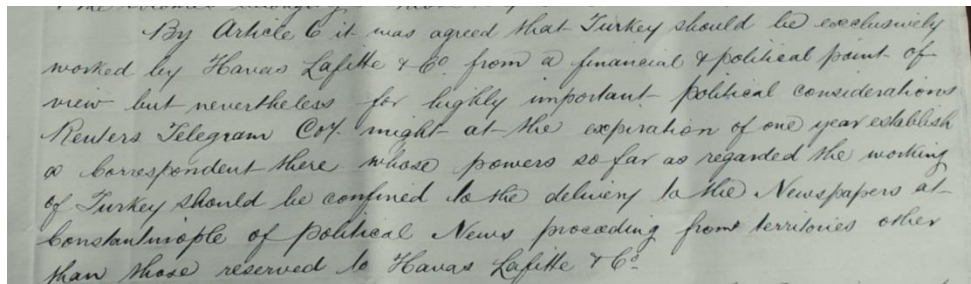 By Article 6 it was agreed that Turkey should be exclusively
worked by Havas Lafitte & Co. from a financial & political point of
view but nevertheless for highly important political considerations
Reuters Telegram Coy. might at the expiration of one year establish
a Correspondent there whose powers so far as regarded the working
of Turkey should be confined to the delivery to the Newspapers at
Constantinople of political News proceeding from territories other
than those reserved to Havas Lafitte & Co.